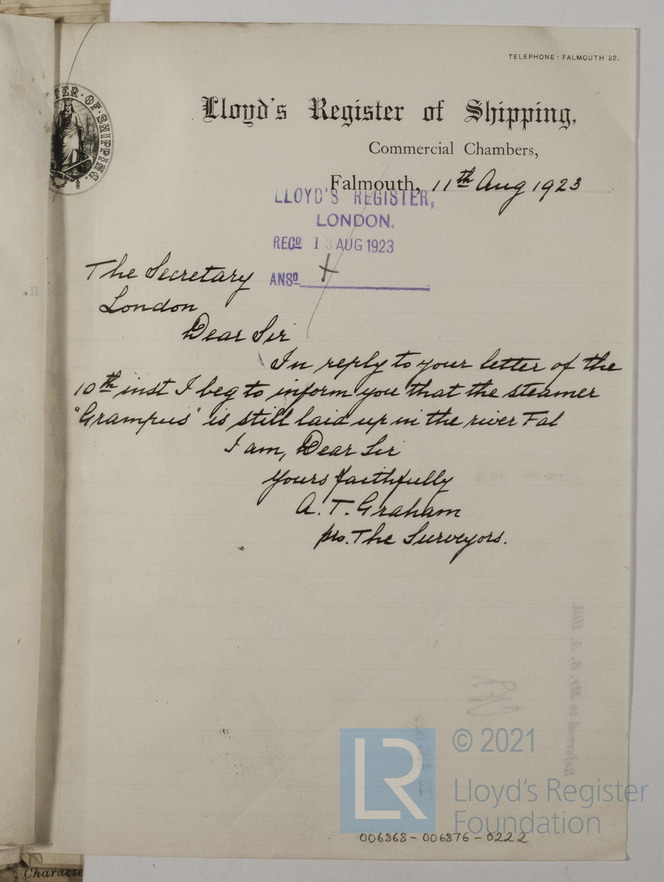 TELEPHONE: FALMOUTH 32.
Lloyd's Register of Shipping,
Commercial Chambers,
Falmouth, 11th Aug 1923
LLOYD'S REGISTER,
LONDON.
RECD 13 AUG 1923
ANSD
The Secretary
London
Dear Sir
In reply to your letter of the
10th inst I beg to inform you that the steamer
"Grampus" is still laid up in the river Fal
I am, Dear Sir
Yours faithfully
A. T. Graham
pro. The Surveyors.
© 2021
LR
Lloyd's Register
Foundation
006868-006876-0222